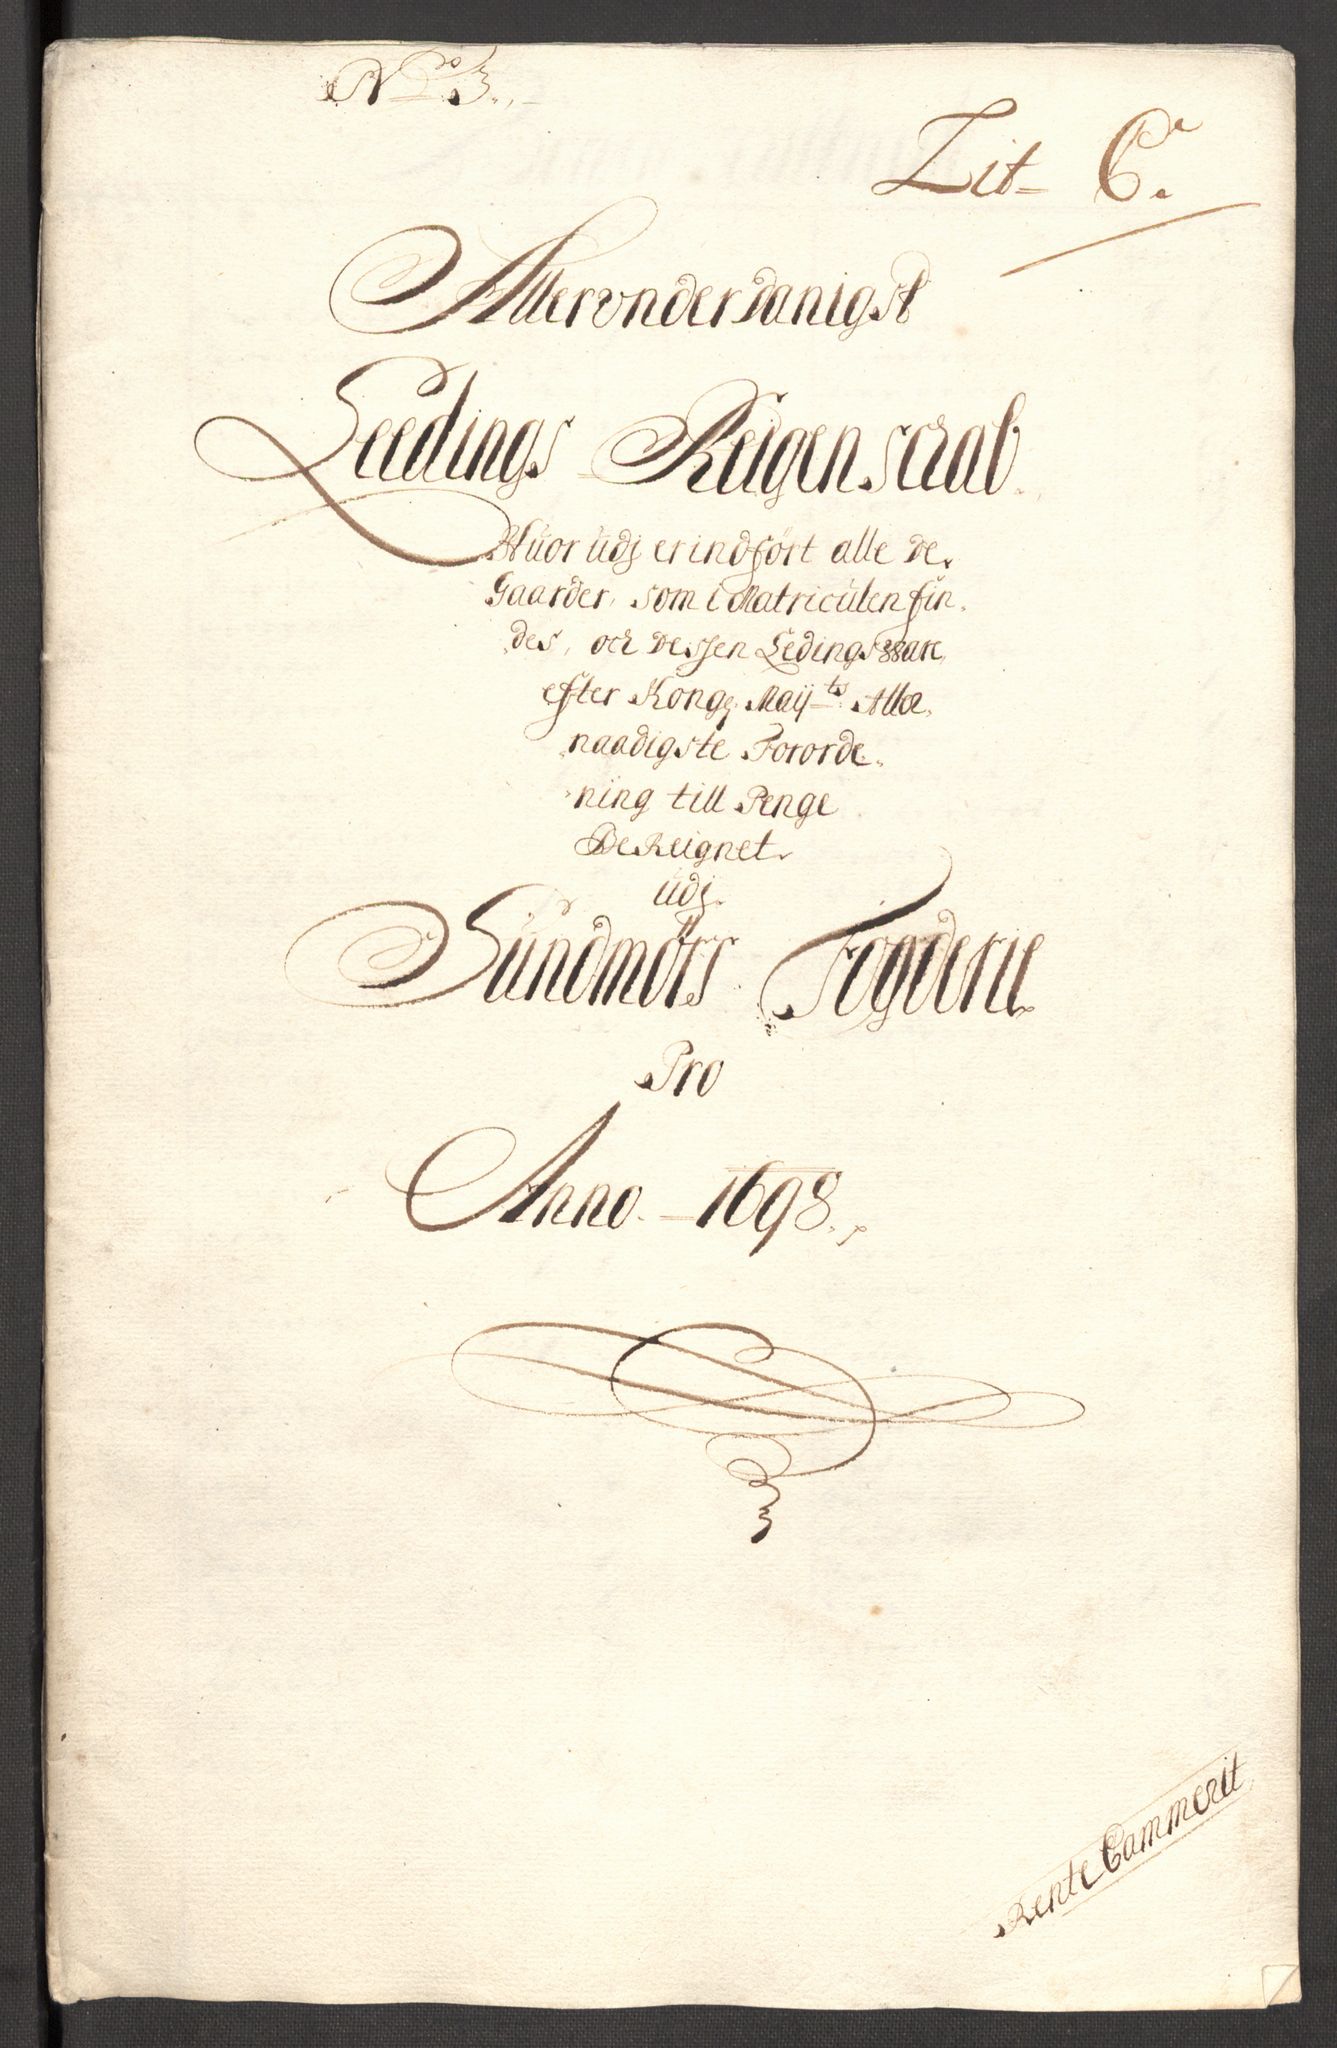 No 3.
Lit= C.
Allerunderdanigst
Leedings Reigenscrab
Huor udj er indfört alle de
Gaarder, som i Matriculen fin-
des, och dessen Ledings Ware
efter Kong. Maÿts Alle
naadigste Fororde-
ning till Penge
BeReignet
udj
Sundmörs Fogderie
Pro
Anno 1698
Rente Cammerit